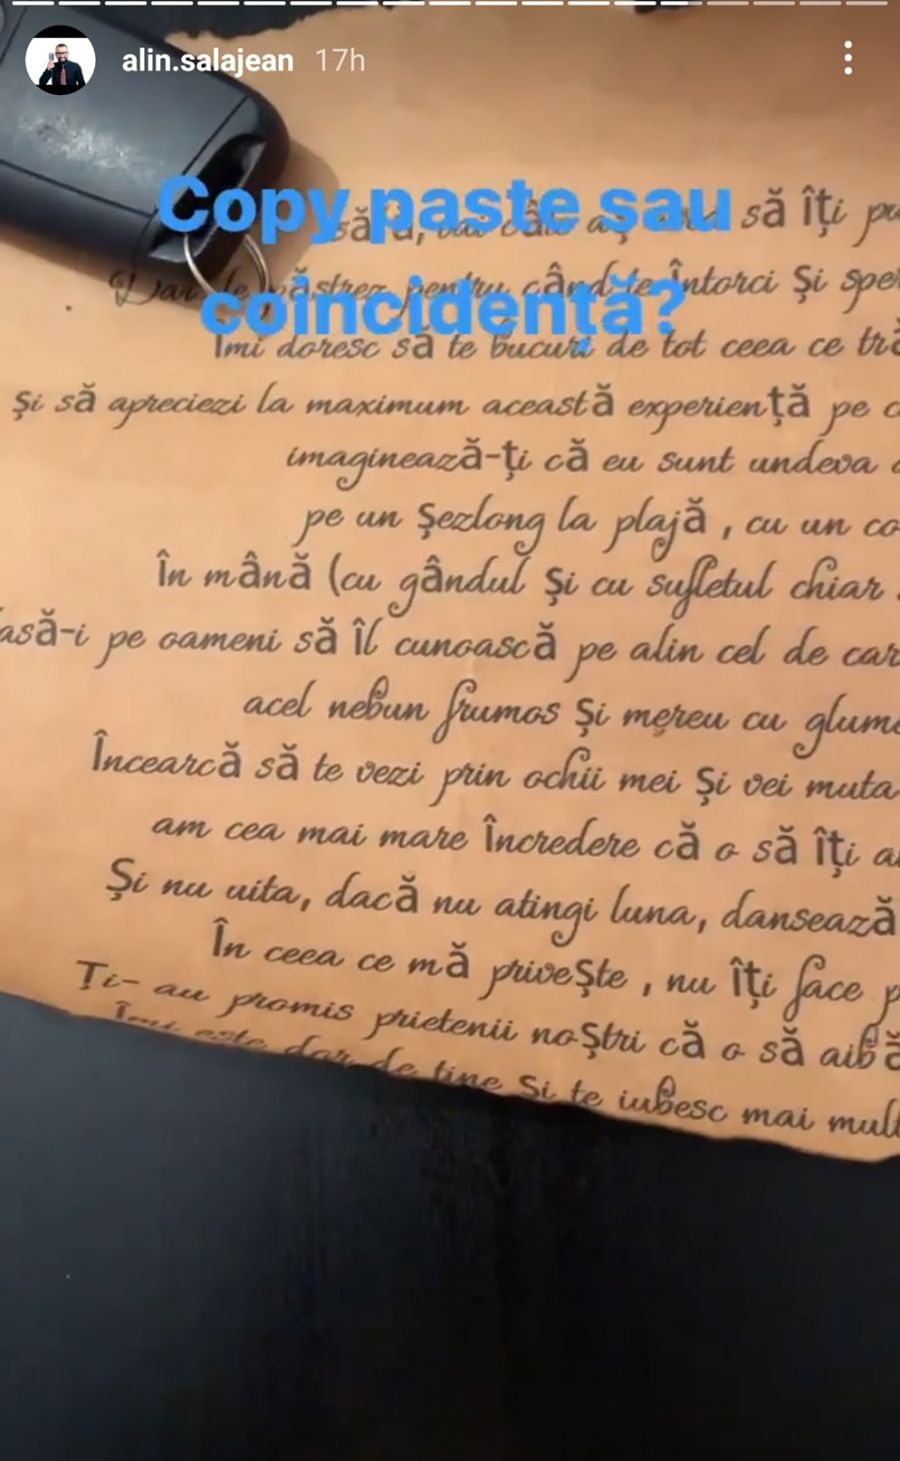 alin.salajean 17h
Copy paste sau
coincidență?
să îți
Dar le păstrez pentru când te întorci și
Îmi doresc să te bucuri de tot ceea ce
și să apreciezi la maximum această experiență pe
imaginează-ți că eu sunt undeva
pe un șezlong la plajă , cu un
În mână (cu gândul și cu sufletul chiar
asă-i pe oameni să îl cunoască pe alin cel de
acel nebun frumos și mereu cu glume
Încearcă să te vezi prin ochii mei și vei muta
am cea mai mare Încredere că o să îți
Și nu uita, dacă nu atingi luna, dansează
În ceea ce mă privește , nu îți face
Ți- au promis prietenii noștri că o să aibă
Îmi este dor de tine și te iubesc mai mult